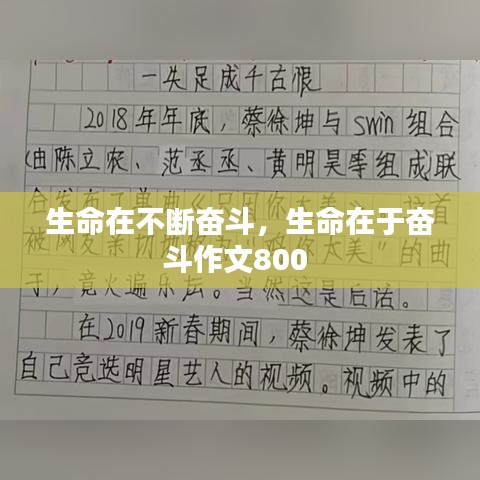 一失足成千古恨
2018年年底，蔡徐坤与swin组合
(由陈立农、范丞丞、黄明昊等组成联
生命在不断奋斗，生命在于奋
斗作文800
于，竟火遍乐坛。当然这是后话。
在2019新春期间，蔡徐坤发表了
自己竞选明星艺人的视频。视频中的